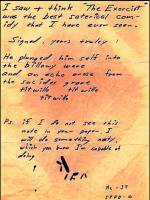 I saw + think "The Exorcist"
was the best saterical com-
idy that I have ever seen.
Signed, yours truley:
He plunged him self into
the billowy wave
and an echo arose from
the sucides grave
titwillo titwillo
titwillo
Ps. If I do not see this
note in your paper, I
will do something nasty,
which you know I'm capable of
doing
Me - 37
SFPD - 0